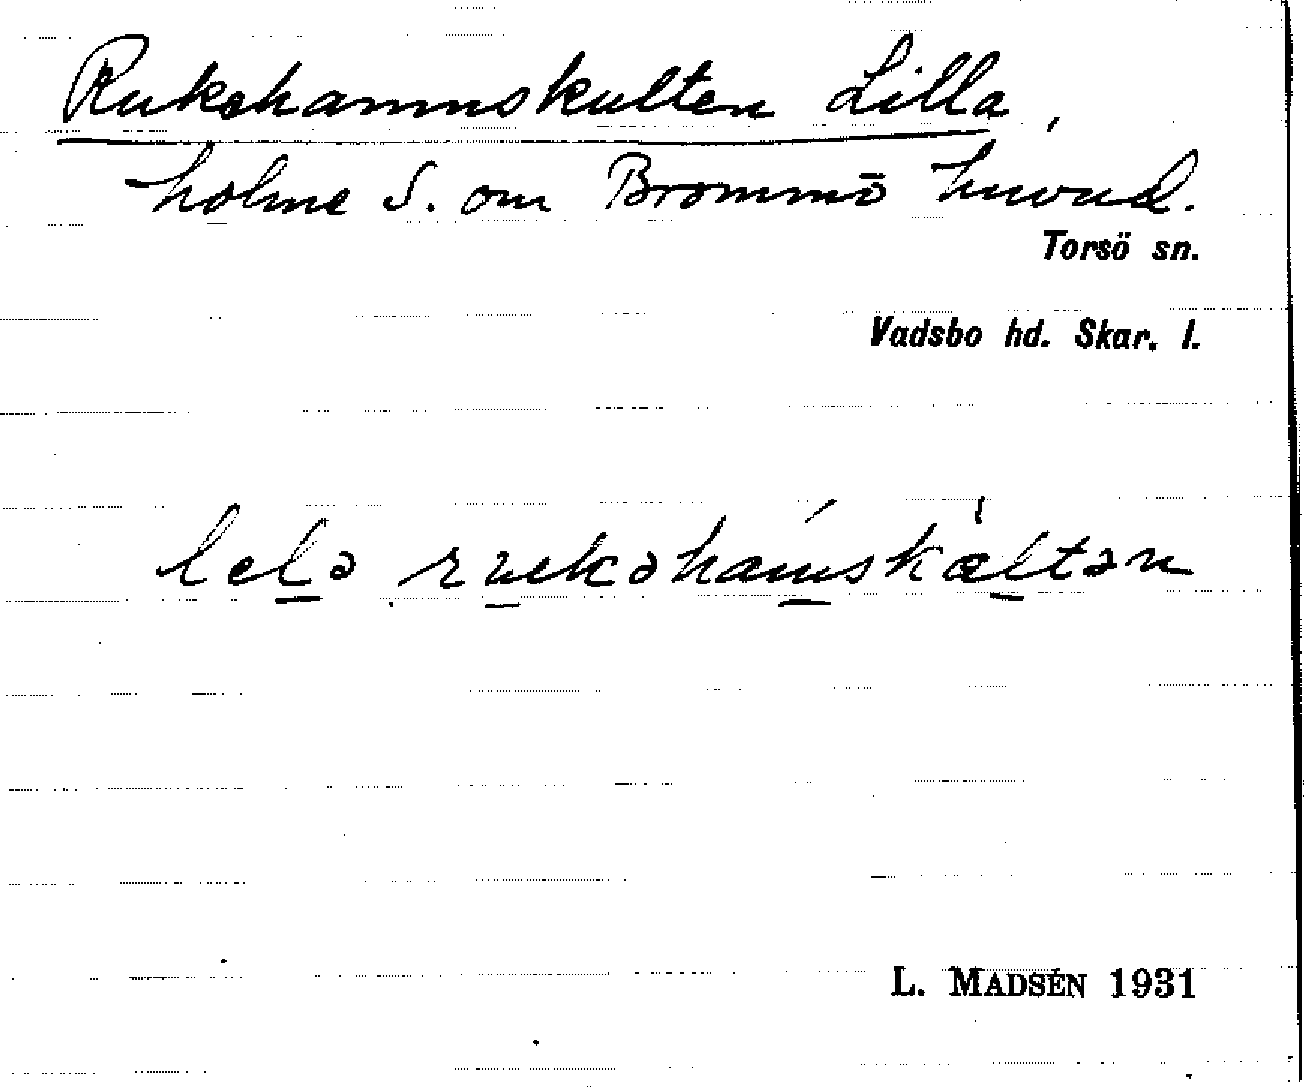 Rukehamnskulten Lilla,
holme S. om Brommö huvud.
Torsö sn.
Vadsbo hd. Skar. l.
lelə rukəhamskæltən
L. MADSÉN 1931